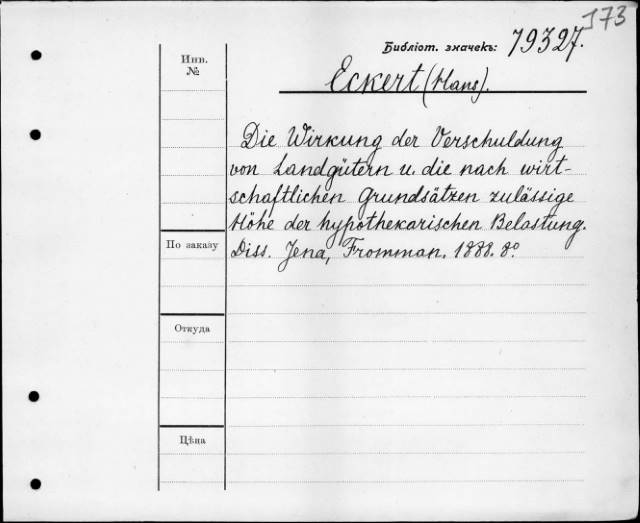 173
Библіот. значекъ: 79327.
Инв.
№
Eckert (Hans).
Die Wirkung der Verschuldung
von Landgütern u. die nach wirt-
schaftlichen Grundsätzen zulässige
Höhe der hypothekarischen Belastung.
По заказу
Diss. Jena, Fromman. 1888. 8º
Откуда
Цѣна